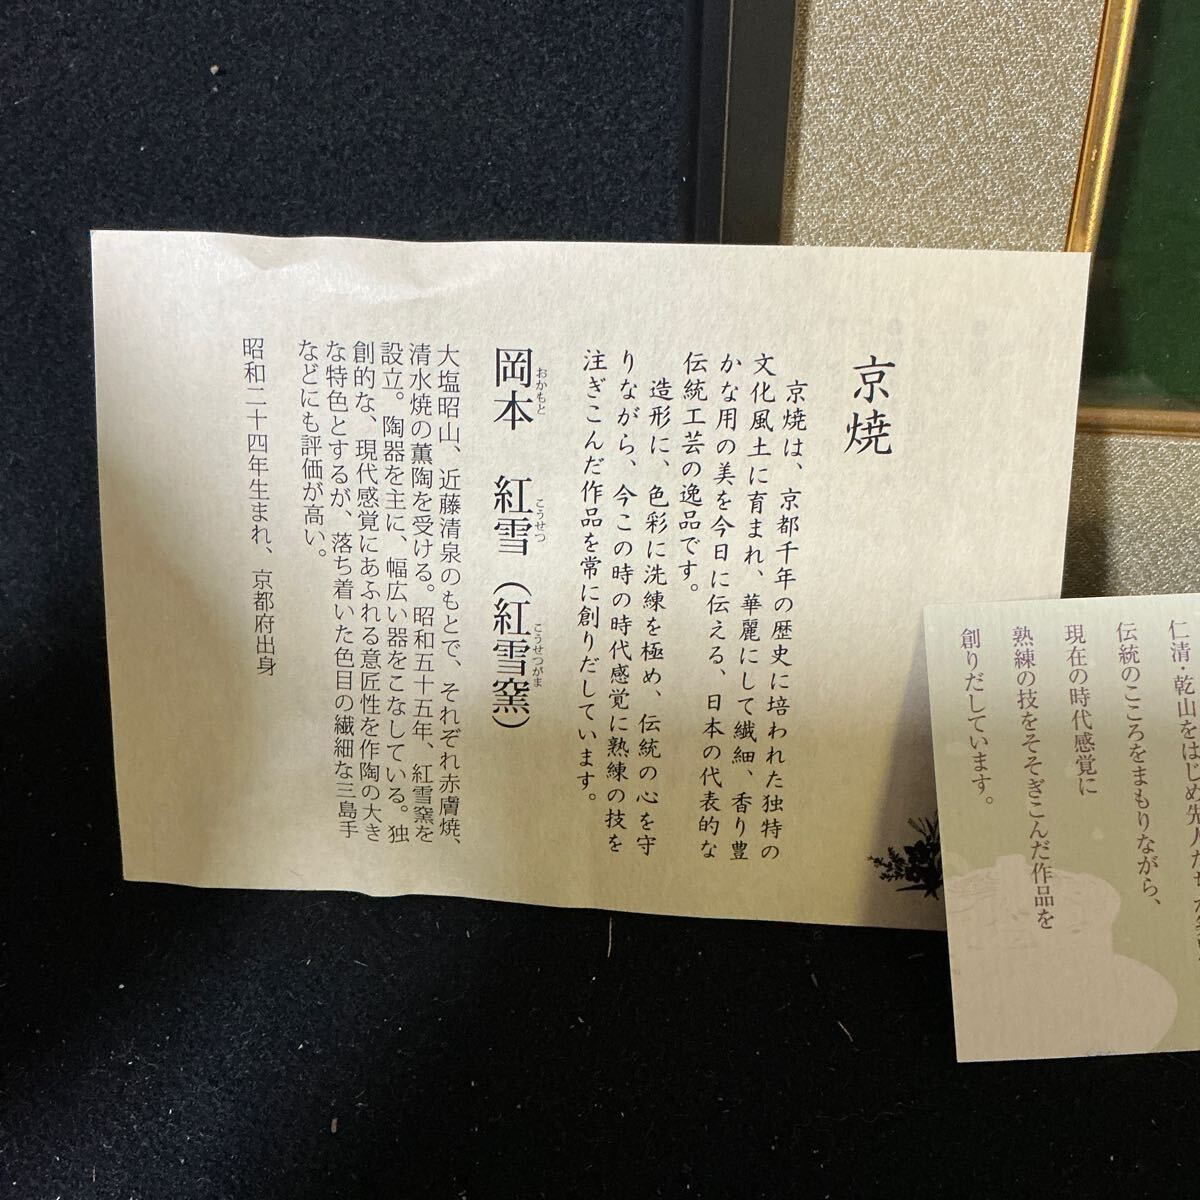 京焼
京焼は、京都千年の歴史に培われた独特の
文化風土に育まれ、華麗にして繊細、香り豊
かな用の美を今日に伝える、日本の代表的な
伝統工芸の逸品です。
造形に、色彩に洗練を極め、伝統の心を守
りながら、今この時の時代感覚に熟練の技を
注ぎこんだ作品を常に創りだしています。
岡本 紅雪(紅雪窯)
おかもと こうせつ こうせつがま
大塩昭山、近藤清泉のもとで、それぞれ赤膚焼、
清水焼の薫陶を受ける。昭和五十五年、紅雪窯を
設立。陶器を主に、幅広い器をこなしている。独
創的な、現代感覚にあふれる意匠性を作陶の大き
な特色とするが、落ち着いた色目の繊細な三島手
などにも評価が高い。
昭和二十四年生まれ、京都府出身
仁清・乾山をはじめ先人たちが
伝統のこころをまもりながら、
現在の時代感覚に
熟練の技をそそぎこんだ作品を
創りだしています。